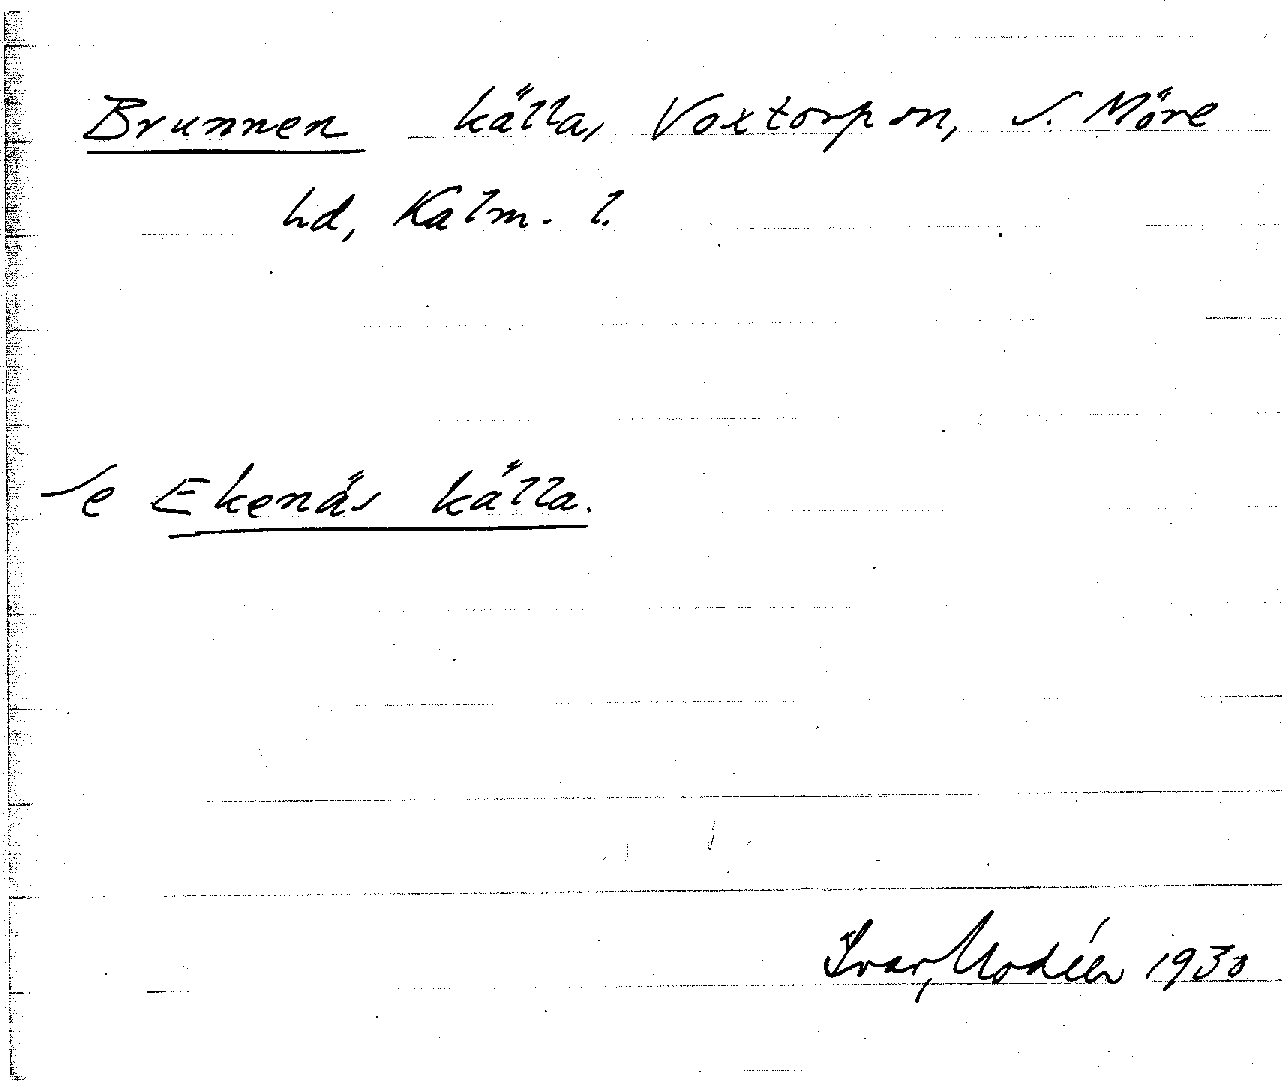 Brunnen källa, Voxtorps sn, S. Möre
hd, Kalm. l.
Se Ekenäs källa.
Ivar Modéer 1930